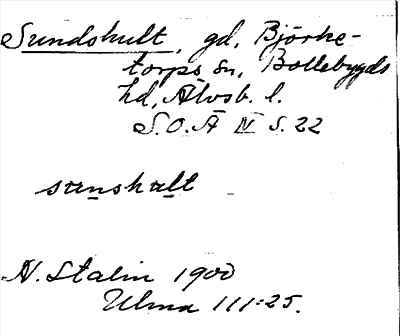 Sundshult, gd, Björke-
torps sn, Bollebygds
hd, Älvsb. l.
S.O.Ä IV S. 22
sunshult
N. Stalin 1900
Ulma 111:25.